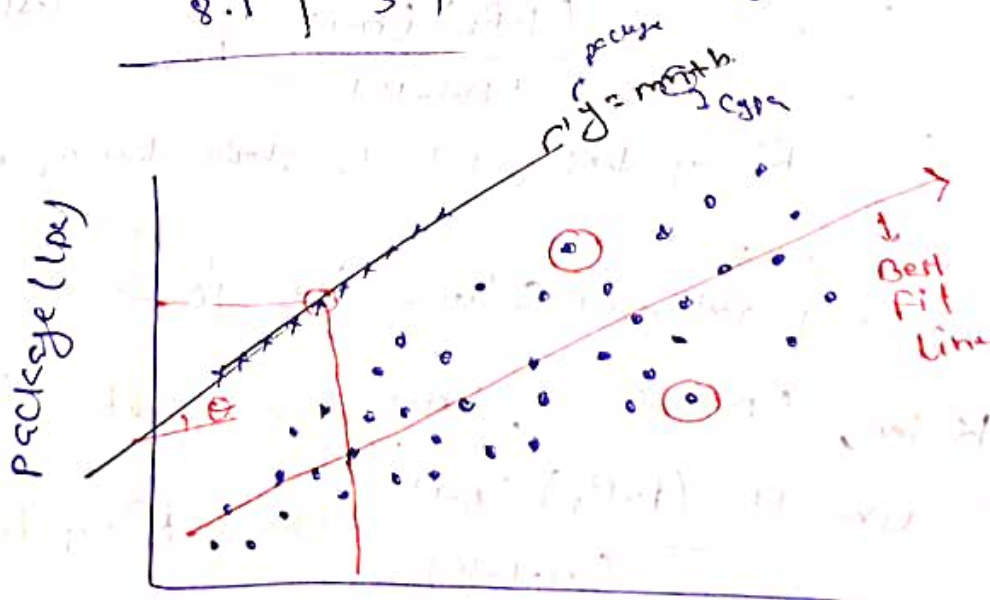 8.1 |
package
y = mx + b
cgpa
Package (lpa)
θ
Best
Fit
Line